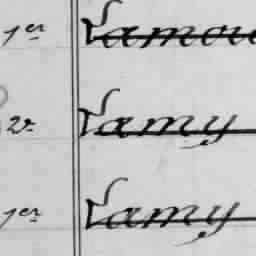 1er Lamou
2e Lamy
1er Lamy